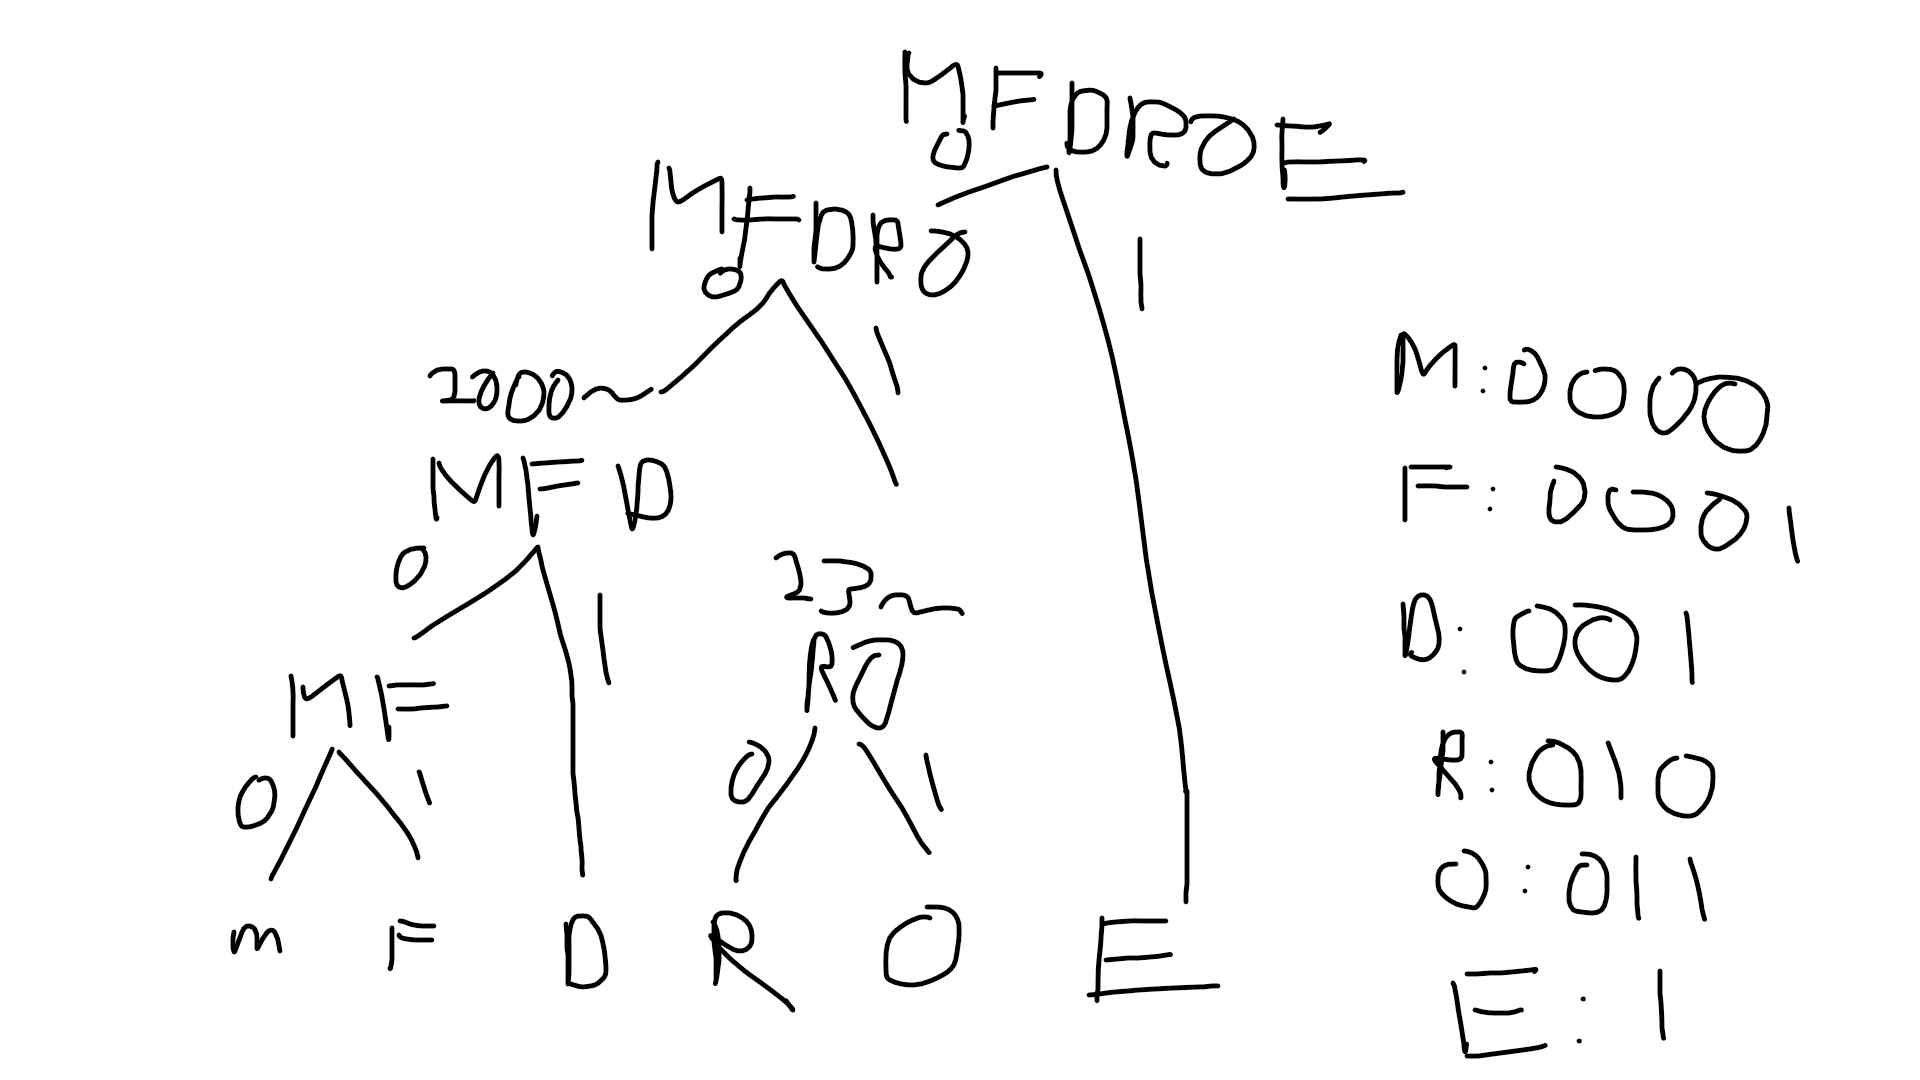 MFDROE
0
MFDRO
0
1
1
2000~
MFD
0
1
23~
RO
MF
0
1
0
1
m F D R O E
M: 0000
F: 0001
D: 001
R: 010
O: 011
E: 1